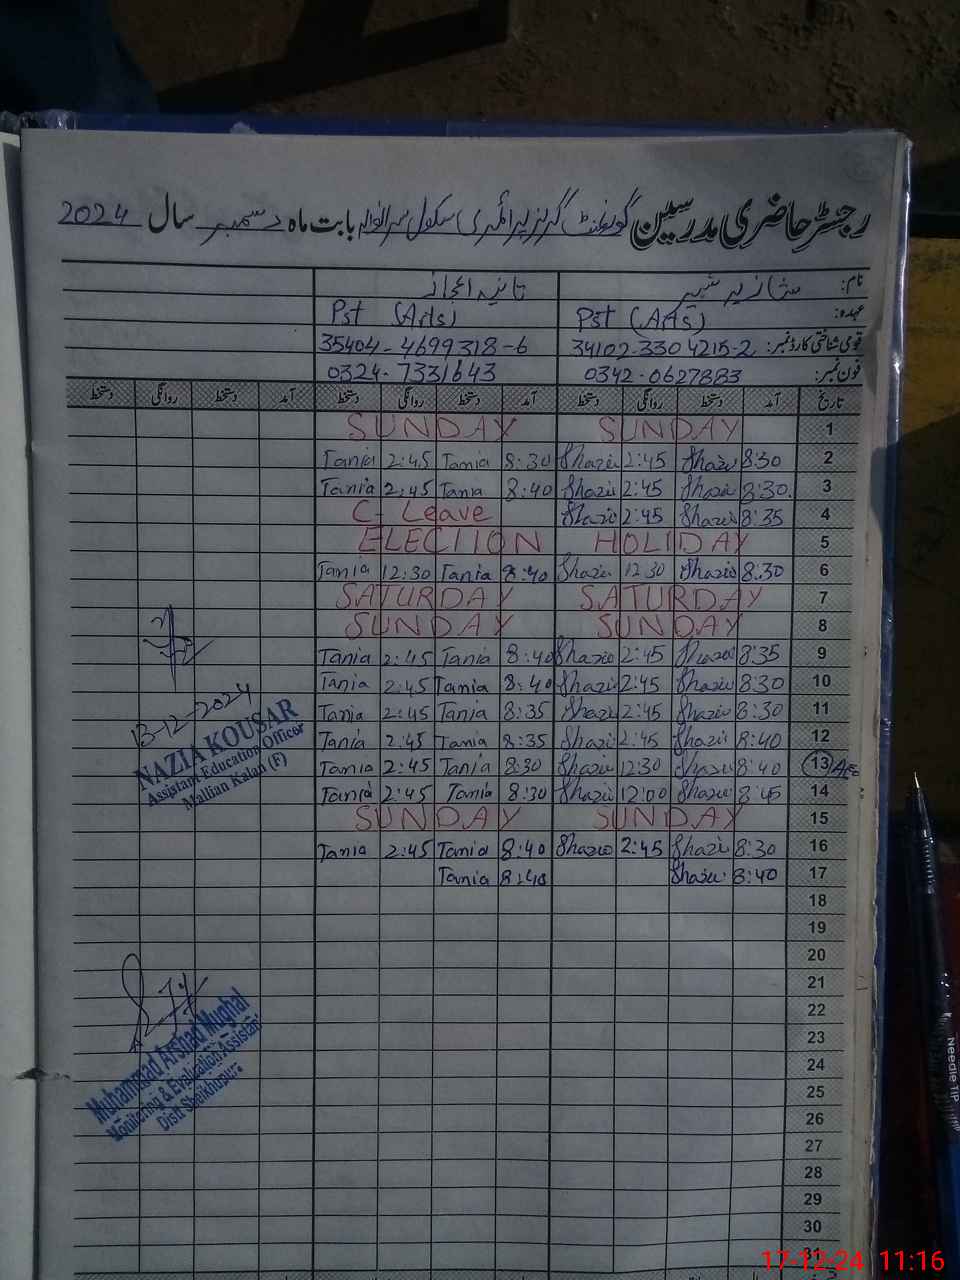 رجسٹر حاضری مدرسین گورنمنٹ گرلز پرائمری سکول بابت ماہ دسمبر سال 2024
نام: شازیہ شبیر تانیہ اعجاز
عہدہ: Pst (Arts) Pst (Arts)
قومی شناختی کارڈ نمبر: 34102-3304215-2 35404-4699318-6
فون نمبر: 0342-0627883 0324-7331643
تاریخ آمد دستخط روانگی دستخط آمد دستخط روانگی دستخط آمد دستخط روانگی دستخط
SUNDAY SUNDAY 1
Tania 2:45 Tania 8:30 Shazia 2:45 Shazia 8:30 2
Tania 2:45 Tania 8:40 Shazia 2:45 Shazia 8:30. 3
C- Leave Shazia 2:45 Shazia 8:35 4
ELECTION HOLIDAY 5
Tania 12:30 Tania 8:40 Shazia 12:30 Shazia 8:30 6
SATURDAY SATURDAY 7
SUNDAY SUNDAY 8
Tania 2:45 Tania 8:40 Shazia 2:45 Shazia 8:35 9
Tania 2:45 Tania 8:40 Shazia 2:45 Shazia 8:30 10
Tania 2:45 Tania 8:35 Shazia 2:45 Shazia 8:30 11
Tania 2:45 Tania 8:35 Shazia 2:45 Shazia 8:40 12
Tania 2:45 Tania 8:30 Shazia 12:30 Shazia 8:40 13 AEO
Tania 2:45 Tania 8:30 Shazia 12:00 Shazia 8:45 14
SUNDAY SUNDAY 15
Tania 2:45 Tania 8:40 Shazia 2:45 Shazia 8:30 16
Tania 8:40 Shazia 8:40 17
18
19
20
21
22
23
24
25
26
27
28
29
30
31
13-12-2024
NAZIA KOUSAR
Assistant Education Officer
Mallian Kalan (F)
Muhammad Arshad Mughal
Monitoring & Evaluation Assistant
Distt Sheikhupura
Needle TIP
17-12-24 11:16